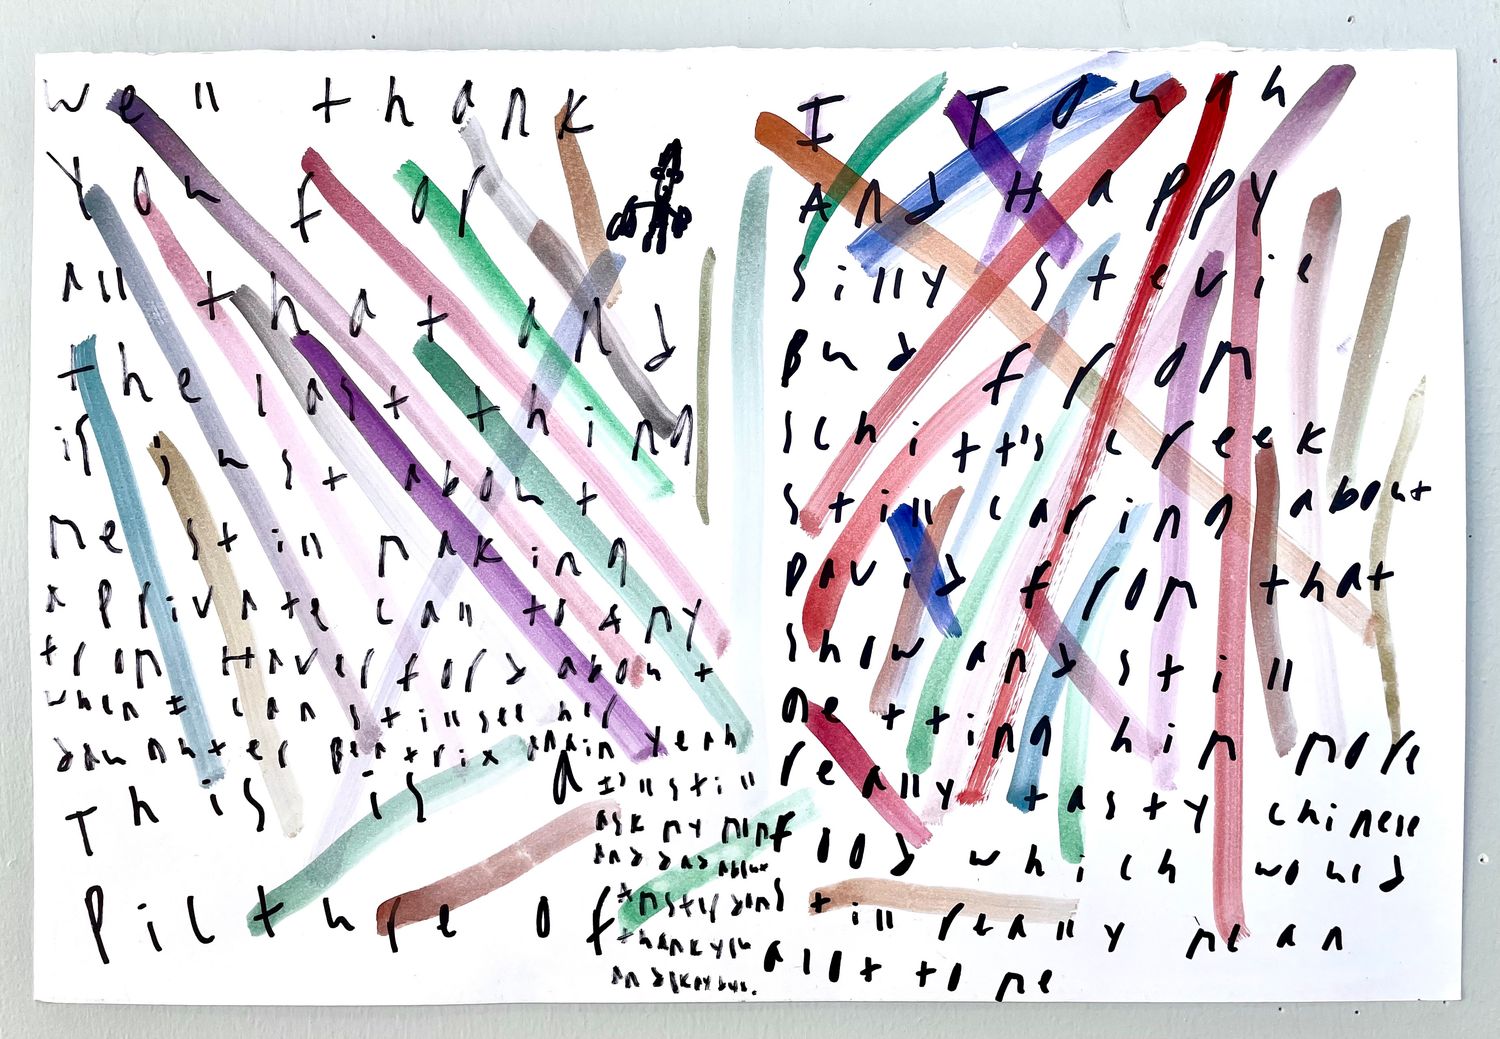 Well thank
you for
All that and
the last thing
is just about
me still making
a private call to Amy
from Haverford about
when I can still see her
daughter Beatrix again yeah
This is A
Picture of
I'll still
ask my mom
and dad about
thank you
I Touah
And Happy
silly Stevie
Bud from
schitt's creek
still caring about
David from that
show and still
getting him more
really tasty chinese
food which would
still really mean
alot to me